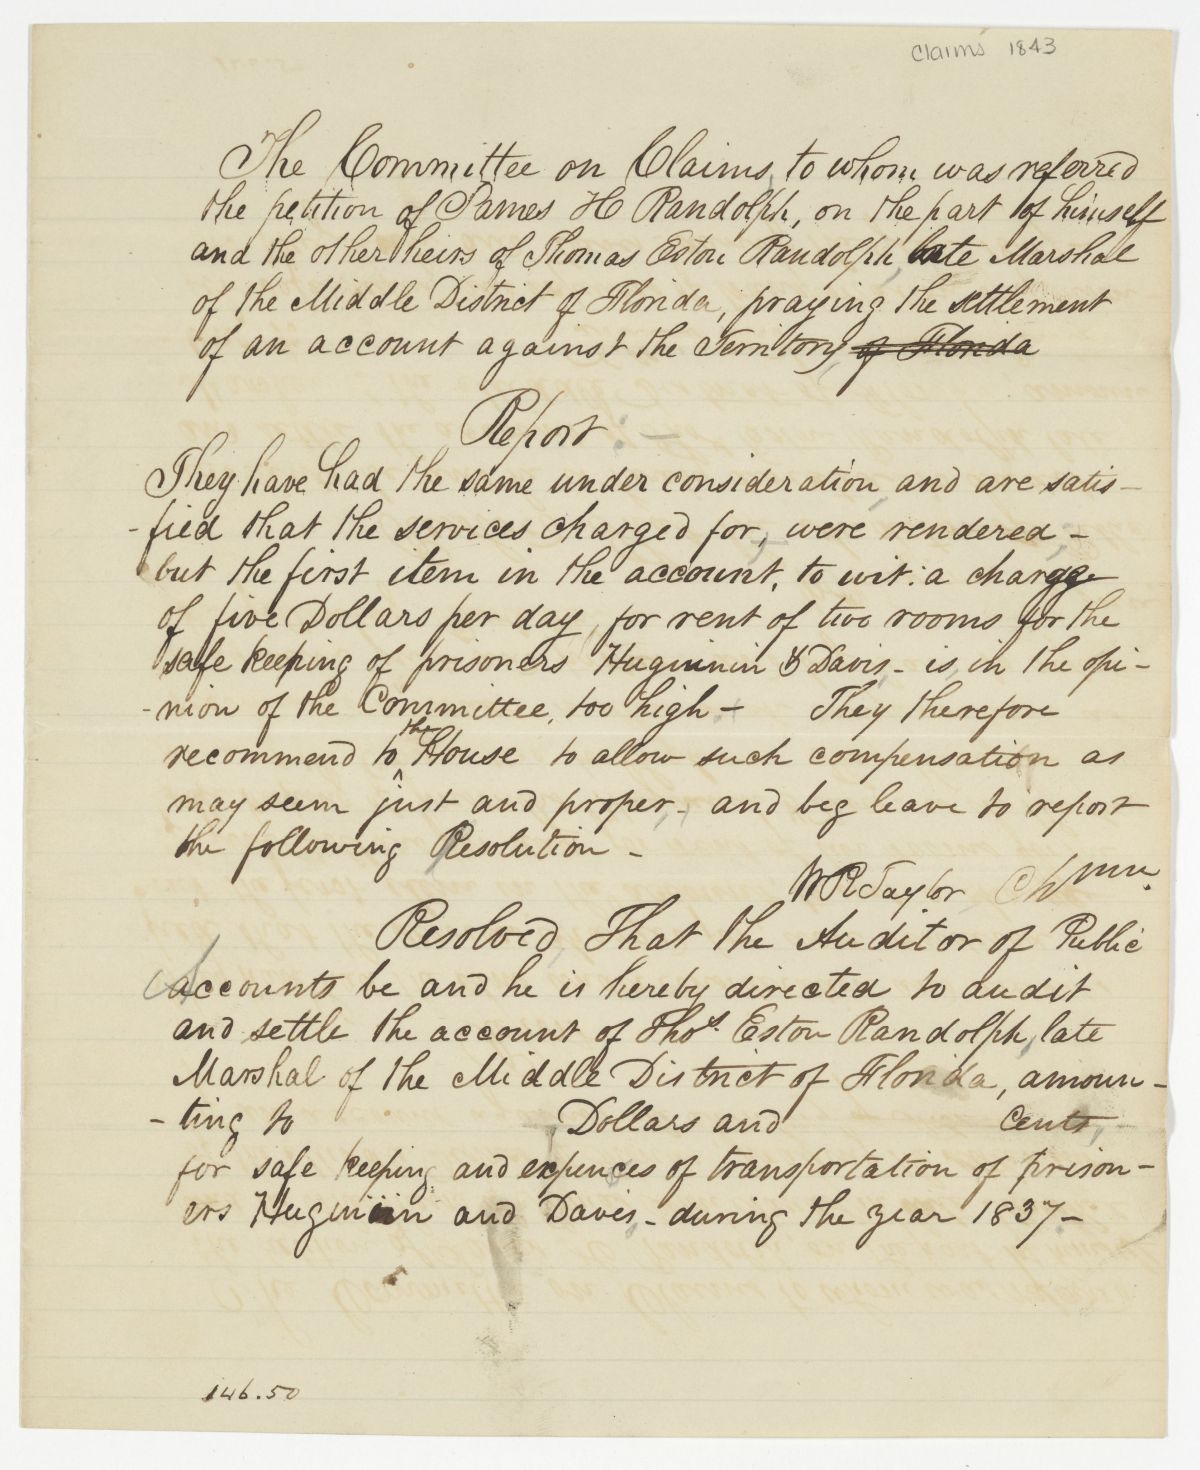 Claims 1843
The Committee on Claims, to whom was referred
the petition of James H Randolph, on the part of himself
and the other heirs of Thomas Eston Randolph, late Marshal
of the Middle District of Florida, praying the settlement
of an account against the Territory, of Florida
Report: —
They have had the same under consideration, and are satis-
-fied that the services charged for, were rendered, -
but the first item in the account, to wit: a charge
of five Dollars per day, for rent of two rooms for the
safe keeping of prisoners Huguinin & Davis - is, in the opi-
-nion of the Committee, too high - They therefore
recommend to the House to allow such compensation as
may seem just and proper, - and beg leave to report
the following Resolution -
W R Taylor, Chmn.
Resolved, That the Auditor of Public
Accounts be and he is hereby directed to audit
and settle the account of Thos. Eston Randolph, late
Marshal of the Middle District of Florida, amoun-
-ting to Dollars and cents, -
for safe keeping and expences of transportation of prison-
ers Huguinin and Davis, - during the year 1837 -
146.50